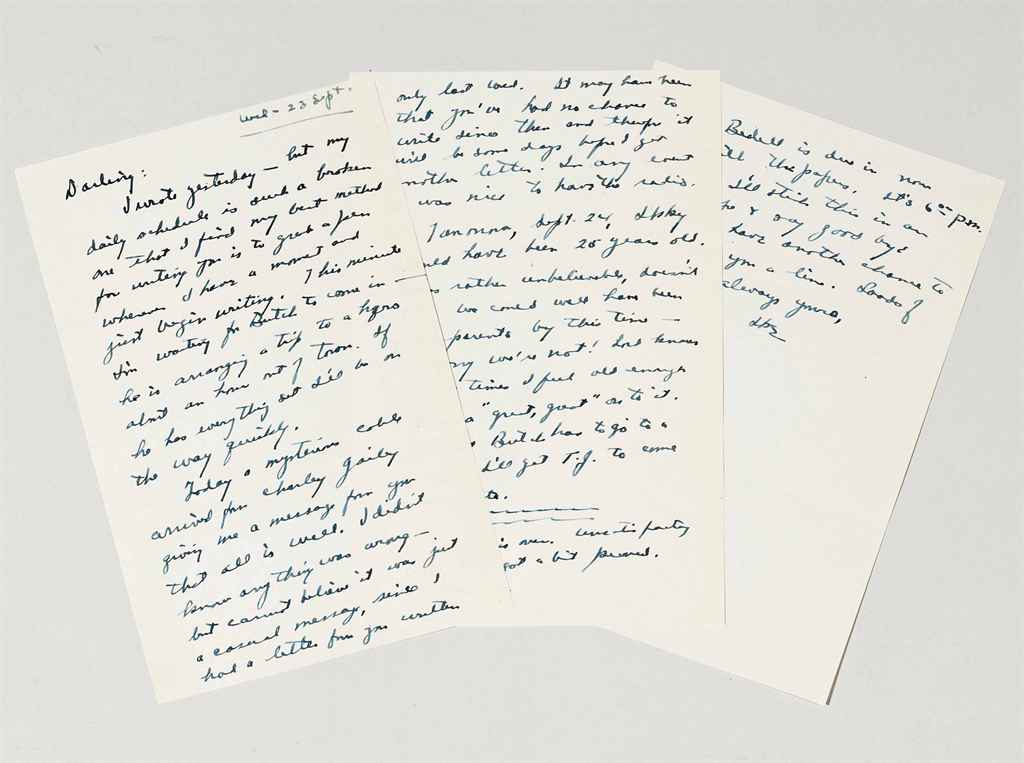 Wed - 23 Sept.
Darling:
I wrote yesterday - but my
daily schedule is such a broken
one that I find my best method
for writing you is to grab a pen
whenever I have a moment and
just begin writing. This minute
I'm waiting for Butch to come in -
he is arranging a trip to a
about an hour out of town. If
he has everything set I'll be on
the way quickly.
Today a mysterious cable
arrived from Charley Gailey
giving me a message from you
that all is well. I didn't
know anything was wrong -
but cannot believe it was just
a casual message, since I
had a letter from you written
only last Wed. It may have been
that you've had no chance to
write since then and there it
will be some days before I get
another letter. In any event
was nice to have the radio.
Tomorrow, Sept. 24, Ikky
have been 25 years old.
rather unbelievable, doesn't
we could well have been
parents by this time -
we're not! Lord knows
times I feel old enough
a "great, great" on to it.
Butch has to go to a
I'll get T.J. to come
is over. Unsatisfactory
not a bit
Bedell is due in now
the papers. It's 6 00 p.m.
I'll stick this in an
& say good bye
have another chance to
you a line. Loads of
always yours,
Ike